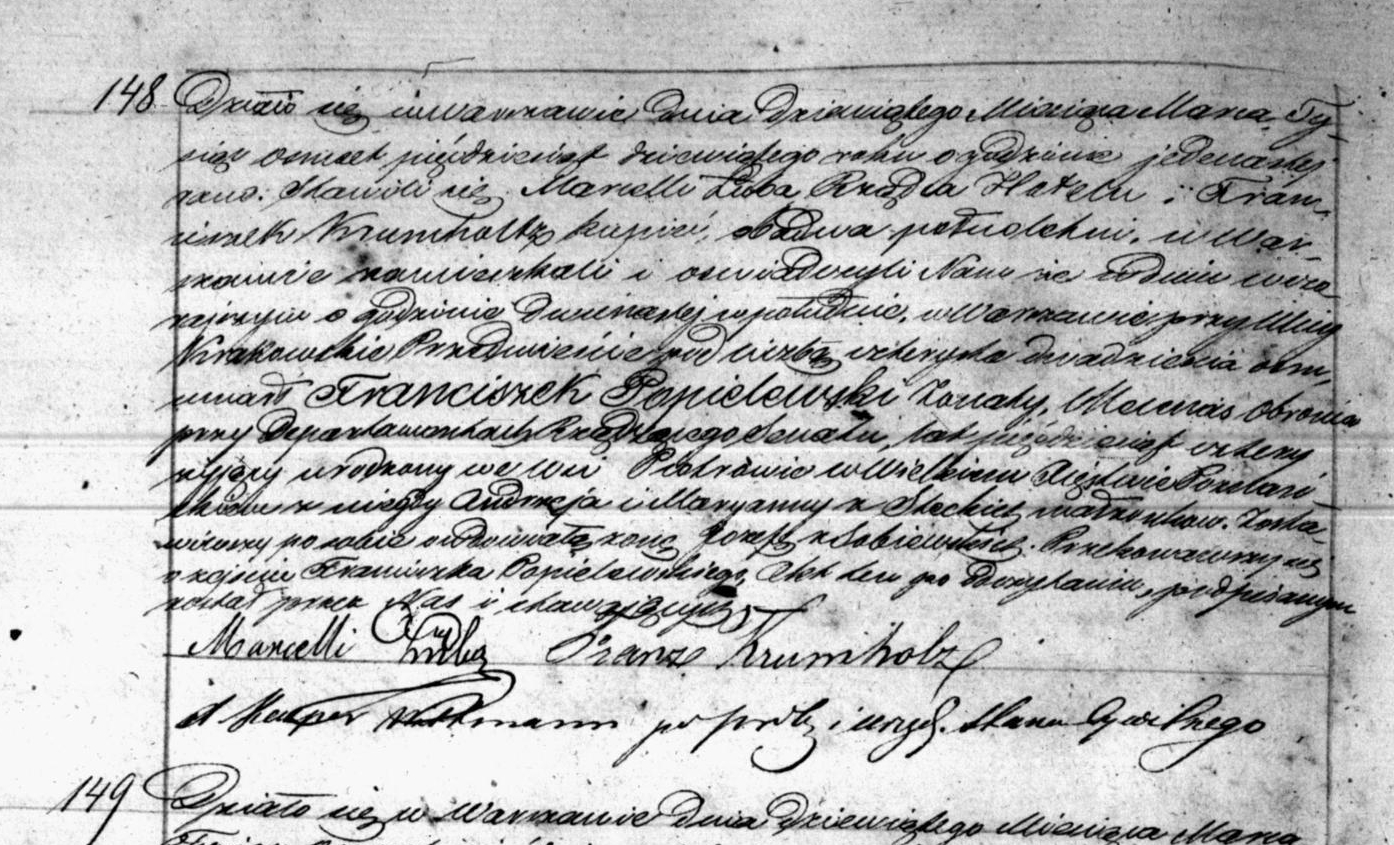 148 Działo się w Warszawie dnia dziewiątego Miesiąca Marca, Ty-
siąc ośmset pięćdziesiąt dziewiątego roku o godzinie jedenastej
rano. Stawili się Marcelli Luba Rządca Hotelu i Fran-
ciszek Krumholtz kupiec, obadwa pełnoletni, w War-
szawie zamieszkali i oświadczyli Nam że w dniu wczo-
rajszym o godzinie dwunastej w południe, w Warszawie przy Ulicy
Krakowskie Przedmieście pod liczbą czterysta dwadzieścia ośm,
umarł Franciszek Popielewski żonaty, Mecenas Obrońca
przy Departamentach Rządzącego Senatu, lat pięćdziesiąt cztery
liczący urodzony we wsi Piotrowie w Wielkiem Xięstwie Poznań-
skiem z niegdy Andrzeja i Maryanny z Steckich małżonków. Zosta-
wiwszy po sobie owdowiałą żonę Józefę z Sobiewskich. Przekonawszy się
o zejściu Franciszka Popielewskiego, Akt ten po odczytaniu, podpisanym
został przez Nas i stawających
Marcelli Luba Franz Krumholz
po prob i urzęd. Stanu Cywilnego
149 Działo się w Warszawie dnia dziewiątego Miesiąca Marca